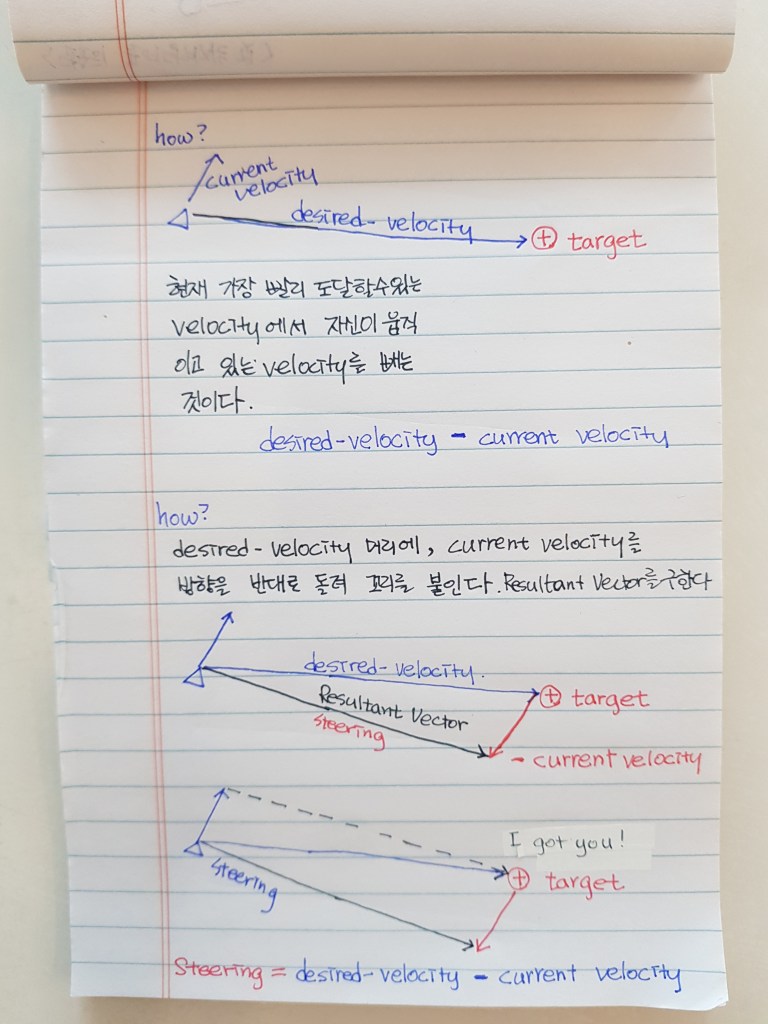 how?
current
velocity
desired-velocity
target
현재 가장 빨리 도달할수있는
velocity에서 자신이 움직
이고 있는 velocity를 빼는
것이다.
desired-velocity - current velocity
how?
desired-velocity 머리에, current velocity를
방향을 반대로 돌려 꼬리를 붙인다. Resultant Vector를 구한다
desired-velocity.
target
Resultant Vector
steering
- current velocity
I got you!
target
steering
Steering = desired-velocity - current velocity